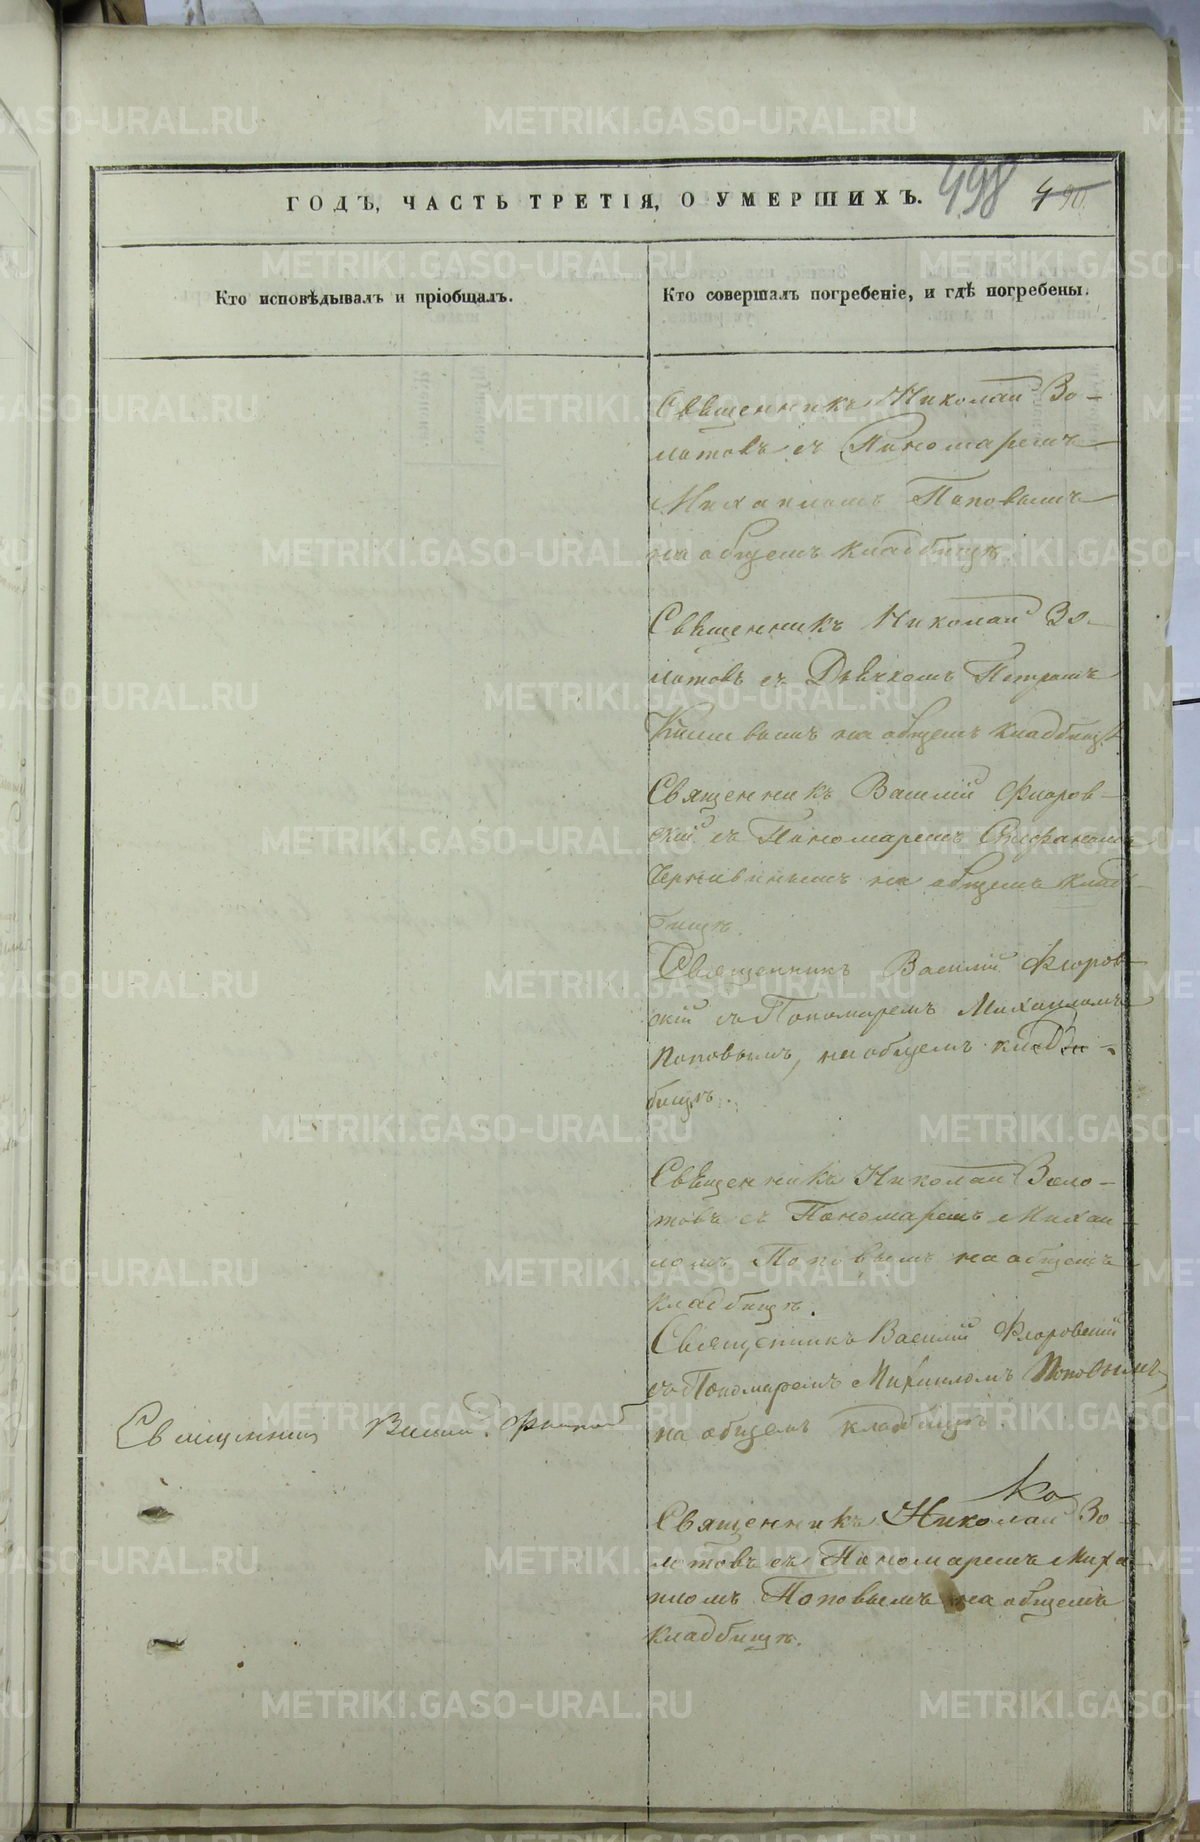 ГОДЪ, ЧАСТЬ ТРЕТІЯ, О УМЕРШИХЪ.
498
490
Кто исповѣдывалъ и пріобщалъ.
Кто совершалъ погребеніе, и гдѣ погребены.
Священникъ Николай Зо-
лотовъ съ Пономаремъ
Михаиломъ Поповымъ
на общемъ кладбищѣ.
Священникъ Николай Зо-
лотовъ съ Дьячкомъ Петромъ
на общемъ кладбищѣ
Священникъ Василій Флоров-
скій съ Пономаремъ Стефаномъ
на общемъ клад-
бищѣ.
Священникъ Василій Флоров-
скій съ Пономаремъ Михаиломъ
Поповымъ, на общемъ клад-
бищѣ.
Священникъ Николай Золо-
товъ съ Пономаремъ Михаи-
ломъ Поповымъ на общемъ
кладбищѣ.
Священникъ Василій Флоровскій
съ Пономаремъ Михаиломъ Поповымъ
на общемъ кладбищѣ.
Священникъ Василій
ко
Священникъ Николай Зо-
лотовъ съ Пономаремъ Миха-
иломъ Поповымъ на общемъ
кладбищѣ.
METRIKI.GASO-URAL.RU